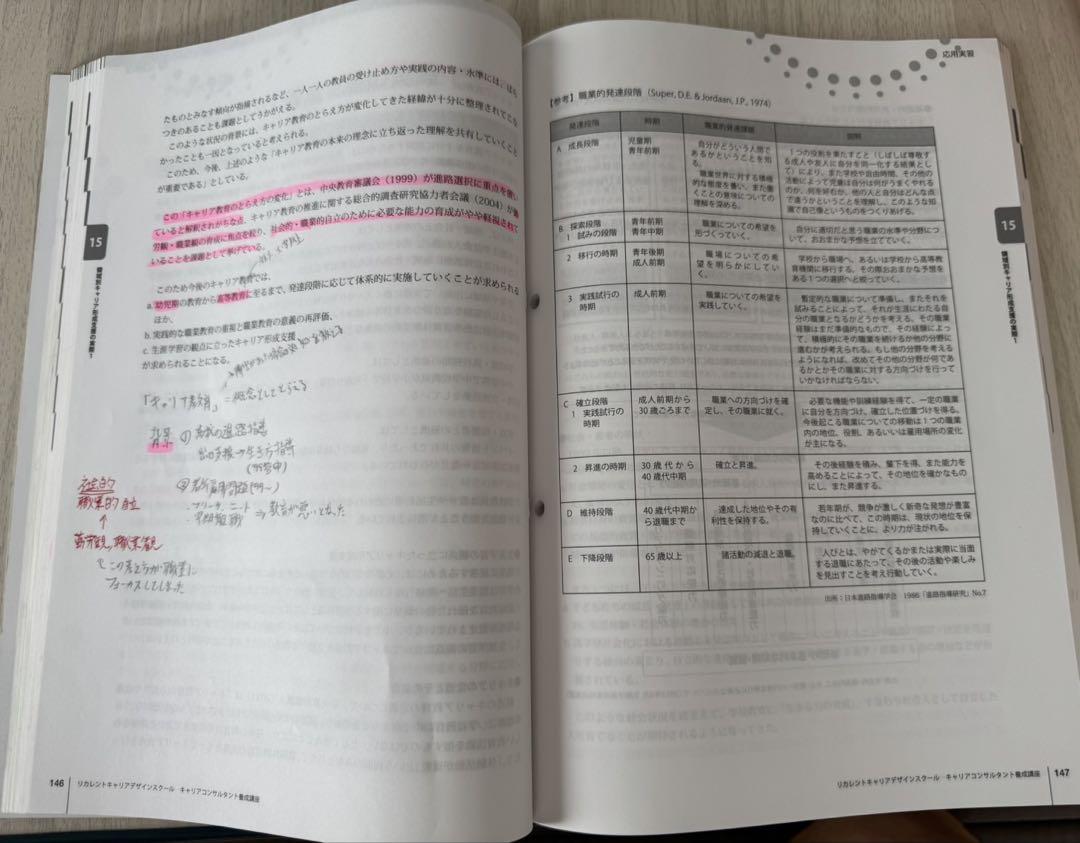 たものとみなす傾向が指摘されるなど、一人一人の教員の受け止め方や実践の内容・水準には、ばら
つきのあることも課題としてうかがえる。
このような状況の背景には、キャリア教育のとらえ方が変化してきた経緯が十分に整理されてこな
かったことも一因となっていると考えられる。
このため、今後、上述のような「キャリア教育の本来の理念に立ち返った理解を共有していくこと
が重要である」としている。
この「キャリア教育のとらえ方の変化」とは、中央教育審議会（1999）が進路選択に重点を置い
ていると解釈されがちな点、キャリア教育の推進に関する総合的調査研究協力者会議（2004）が勤
労観・職業観の育成に焦点を絞り、社会的・職業的自立のために必要な能力の育成がやや軽視されて
いることを課題として挙げている。
このため今後のキャリア教育では、
a. 幼児期の教育から高等教育に至るまで、発達段階に応じて体系的に実施していくことが求められる
ほか、
b. 実践的な職業教育の重視と職業教育の意義の再評価、
c. 生涯学習の観点に立ったキャリア形成支援
が求められることになる。
「キャリア教育」=概念としてとらえる
背景 の 高校の進路指導
出口支援→生き方指導
社会的
職業的自立
↑
勤労観、職業観
この考え方が職業に
フォーカスしてしまった
フリーター、ニート
15
領域別キャリア形成支援の実際1
146
リカレントキャリアデザインスクール キャリアコンサルタント養成講座
応用実習
【参考】職業的発達段階（Super, D.E. & Jordaan, J.P., 1974）
発達段階 時期 職業的発達課題 説明
A 成長段階 児童期
青年前期
自分がどういう人間で
あるかということを知
る。
職業世界に対する積極
的な態度を養い、また働
くことの意味について
の理解を深める。
1つの役割を果たすこと（しばしば尊敬す
る成人や友人に自分を同一化する結果とし
て）により、また学校や自由時間、その他の
活動によって児童は自分は何がうまくやれる
のか、何を好むか、他の人と自分はどんな点
で違うかということを理解し、このような知
識で自己像というものをつくりあげる。
B 探索段階
1 試みの段階
青年前期
青年中期
職業についての希望を
形づくっていく。
自分に適切だと思う職業の水準や分野につ
いて、おおまかな予想を立てていく。
2 移行の時期 青年後期
成人前期
職場についての希
望を明らかにしてい
く。
学校から職場へ、あるいは学校から高等教
育機関に移行する。その際おおまかな予想を
ある1つの選択へと絞っていく。
3 実践試行の
時期
成人前期
職業についての希望を
実践していく。
暫定的な職業について準備し、またそれを
試みることによって、それが生涯にわたる自
分の職業となるかどうかを考える。その職業
経験はまだ準備的なもので、その経験によっ
て、積極的にその職業を続けるか他の分野に
進むかが考えられる。もし他の分野を考える
ようになれば、改めてその他の分野が何であ
るかとかその職業に対する方向づけを行って
いかなければならない。
C 確立段階
1 実践試行の
時期
成人前期から
30歳ころまで
職業への方向づけを確
定し、その職業に就く。
必要な機能や訓練経験を得て、一定の職業
に自分を方向づけ、確立した位置づけを得る。
今後起こる職業についての移動は1つの職業
内の地位、役割、あるいいは雇用場所の変化
が主になる。
2 昇進の時期 30歳代から
40歳代中期
確立と昇進。
その後経験を積み、輩下を得、また能力を
高めることによって、その地位を確かなもの
にし、また昇進する。
D 維持段階 40歳代中期
から退職まで
達成した地位やその有
利性を保持する。
若年期が、競争が激しく新奇な発想が豊富
なのに比べて、この時期は、現状の地位を保
持していくことに、より力が注がれる。
E 下降段階 65歳以上 諸活動の減退と退職。
人びとは、やがてくるかまたは実際に当面
する退職にあたって、その後の活動や楽しみ
を見出すことを考え行動していく。
出所：日本進路指導学会 1986「進路指導研究」No.7
15
領域別キャリア形成支援の実際1
リカレントキャリアデザインスクール キャリアコンサルタント養成講座
147